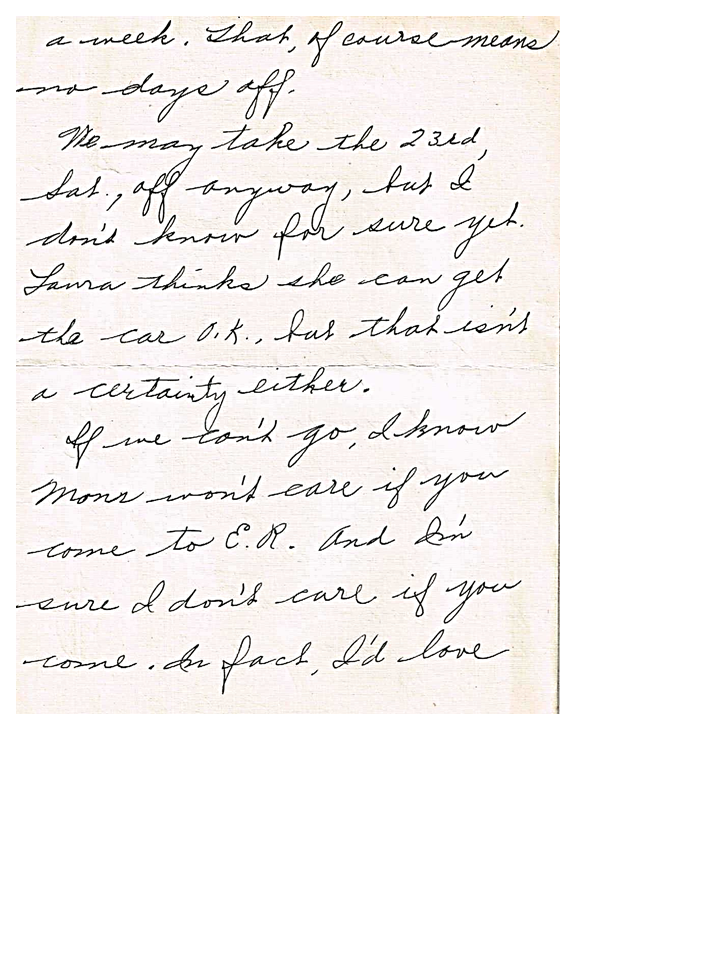 a week. That, of course means
no days off.
We may take the 23rd,
Sat., off anyway, but I
don't know for sure yet.
Laura thinks she can get
the car O.K., but that isn't
a certainty either.
If we can't go, I know
Mom won't care if you
come to E.R. And I'm
sure I don't care if you
come. In fact, I'd love